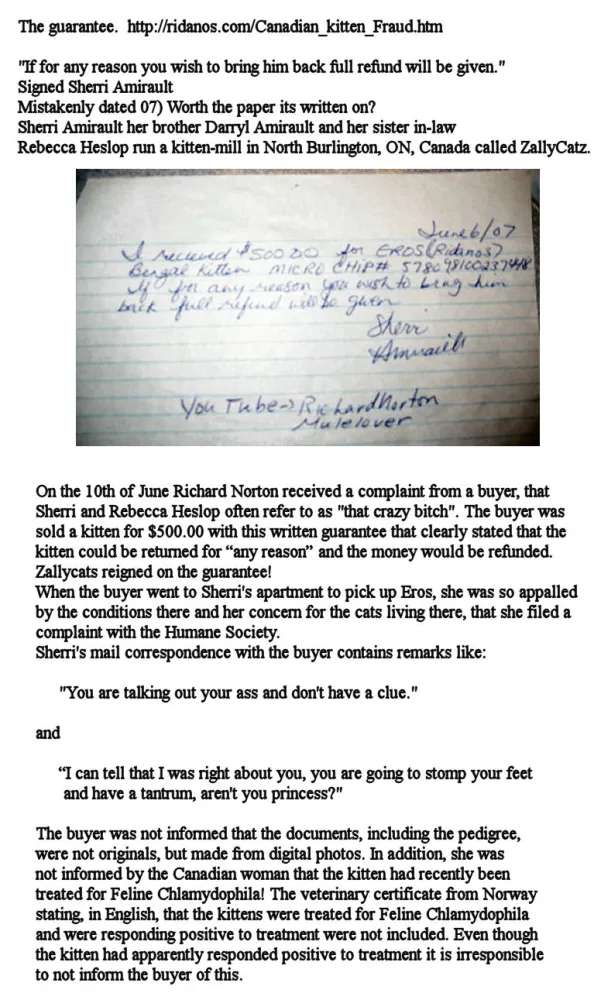 The guarantee. http://ridanos.com/Canadian_kitten_Fraud.htm
"If for any reason you wish to bring him back full refund will be given."
Signed Sherri Amirault
Mistakenly dated 07) Worth the paper its written on?
Sherri Amirault her brother Darryl Amirault and her sister in-law
Rebecca Heslop run a kitten-mill in North Burlington, ON, Canada called ZallyCatz.
June 6/07
I received $500.00 for EROS (Ridanos)
Bengal Kitten MICRO CHIP#
If for any reason you wish to bring him
back full refund will be given
Sherri
Amirault
You Tube-> Richard Norton
Mulelover
On the 10th of June Richard Norton received a complaint from a buyer, that
Sherri and Rebecca Heslop often refer to as "that crazy bitch". The buyer was
sold a kitten for $500.00 with this written guarantee that clearly stated that the
kitten could be returned for “any reason” and the money would be refunded.
Zallycats reigned on the guarantee!
When the buyer went to Sherri's apartment to pick up Eros, she was so appalled
by the conditions there and her concern for the cats living there, that she filed a
complaint with the Humane Society.
Sherri's mail correspondence with the buyer contains remarks like:
"You are talking out your ass and don't have a clue."
and
“I can tell that I was right about you, you are going to stomp your feet
and have a tantrum, aren't you princess?"
The buyer was not informed that the documents, including the pedigree,
were not originals, but made from digital photos. In addition, she was
not informed by the Canadian woman that the kitten had recently been
treated for Feline Chlamydophila! The veterinary certificate from Norway
stating, in English, that the kittens were treated for Feline Chlamydophila
and were responding positive to treatment were not included. Even though
the kitten had apparently responded positive to treatment it is irresponsible
to not inform the buyer of this.